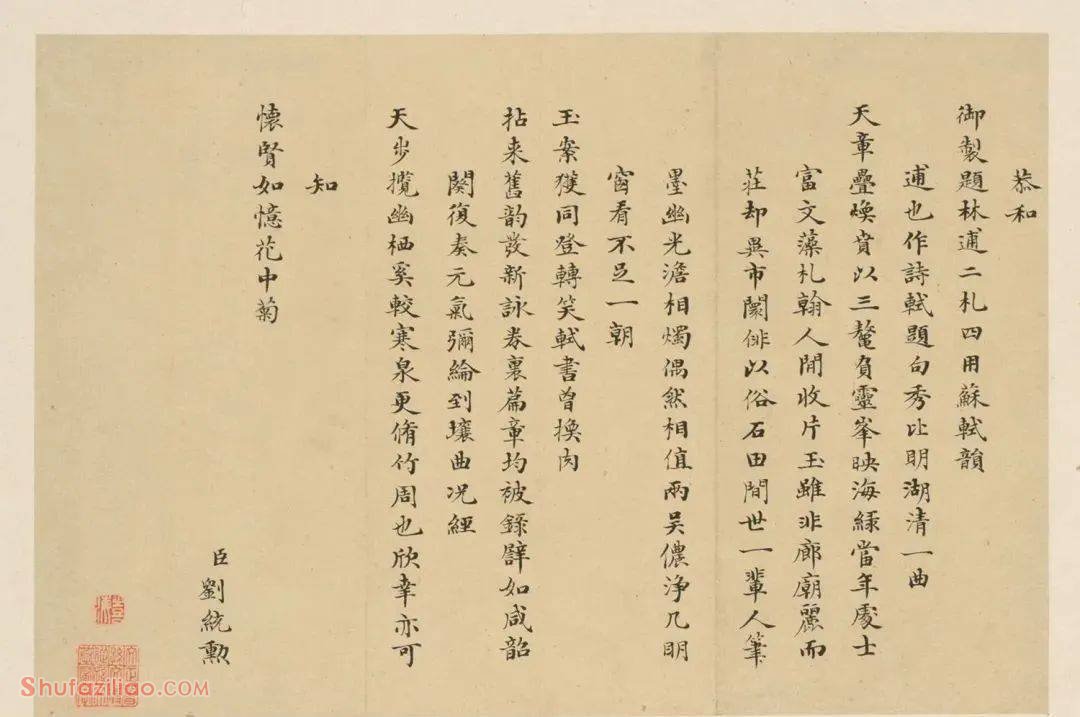 恭和
御製題林逋二札四用蘇軾韻
逋也作詩軾題句秀比明湖清一曲
天章疊煥賁以三鼇負靈峯映海綠當年處士
富文藻札翰人閒收片玉雖非廊廟麗而
莊却吳市闤俳以俗石田閒世一輩人筆
墨幽光澹相燭偶然相值兩吴儂浄几明
窗看不足一朝
玉案獲同登轉笑軾書曾換肉
拈来舊韵發新詠券裏篇章均被錄譬如咸韶
闋復奏元氣彌綸到壤曲况經
天步攬幽栖奚較寒泉更脩竹周也欣幸亦可
知
懐賢如憶花中菊
臣劉統勳
Shufaziliao.COM